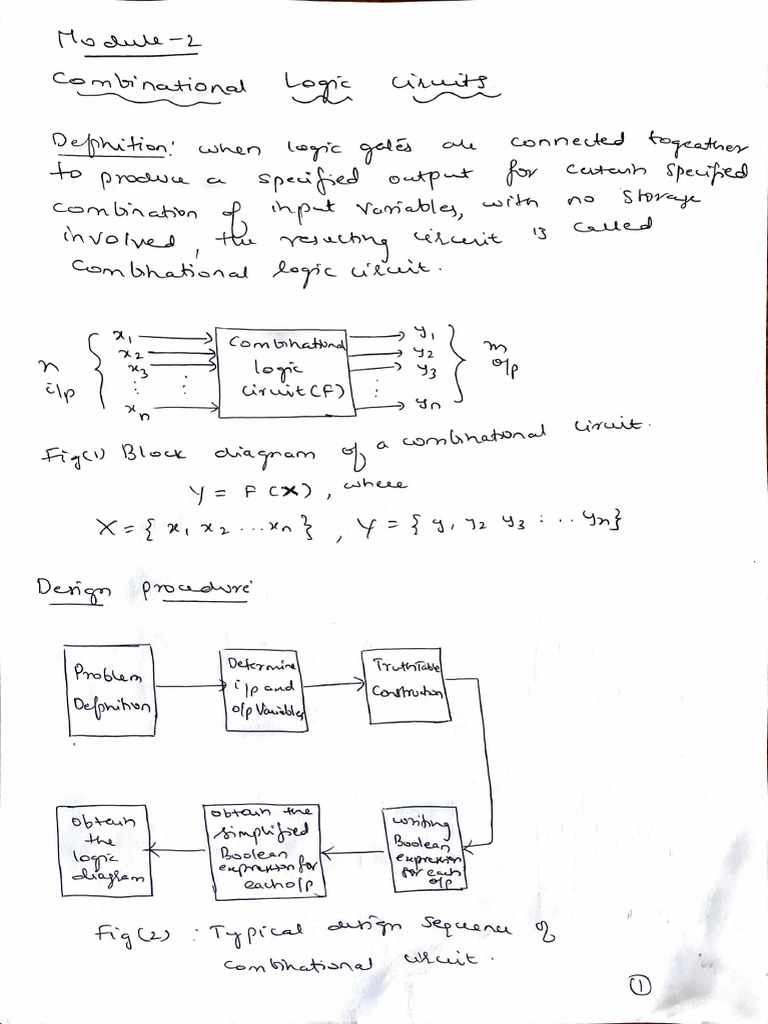 Module-2
Combinational Logic circuits
Definition: when logic gates are connected togeather
to produce a specified output for certain specified
combination of input variables, with no storage
involved, the resulting circuit is called
combinational logic circuit.
n
i/p
x1
x2
x3
⋮
xn
Combinational
logic
circuit (F)
y1
y2
y3
⋮
yn
m
o/p
Fig(1) Block diagram of a combinational circuit.
Y = F(X), where
X = { x1 x2 ... xn }, Y = { y1 y2 y3 : .. yn}
Design procedure:
Problem
Definition
Determine
i/p and
o/p Variables
Truth Table
Construction
writing
Boolean
expression
for each
o/p
obtain the
simplified
Boolean
expression for
each o/p
obtain
the
logic
diagram
Fig(2) : Typical design sequence of
combinational circuit.
1